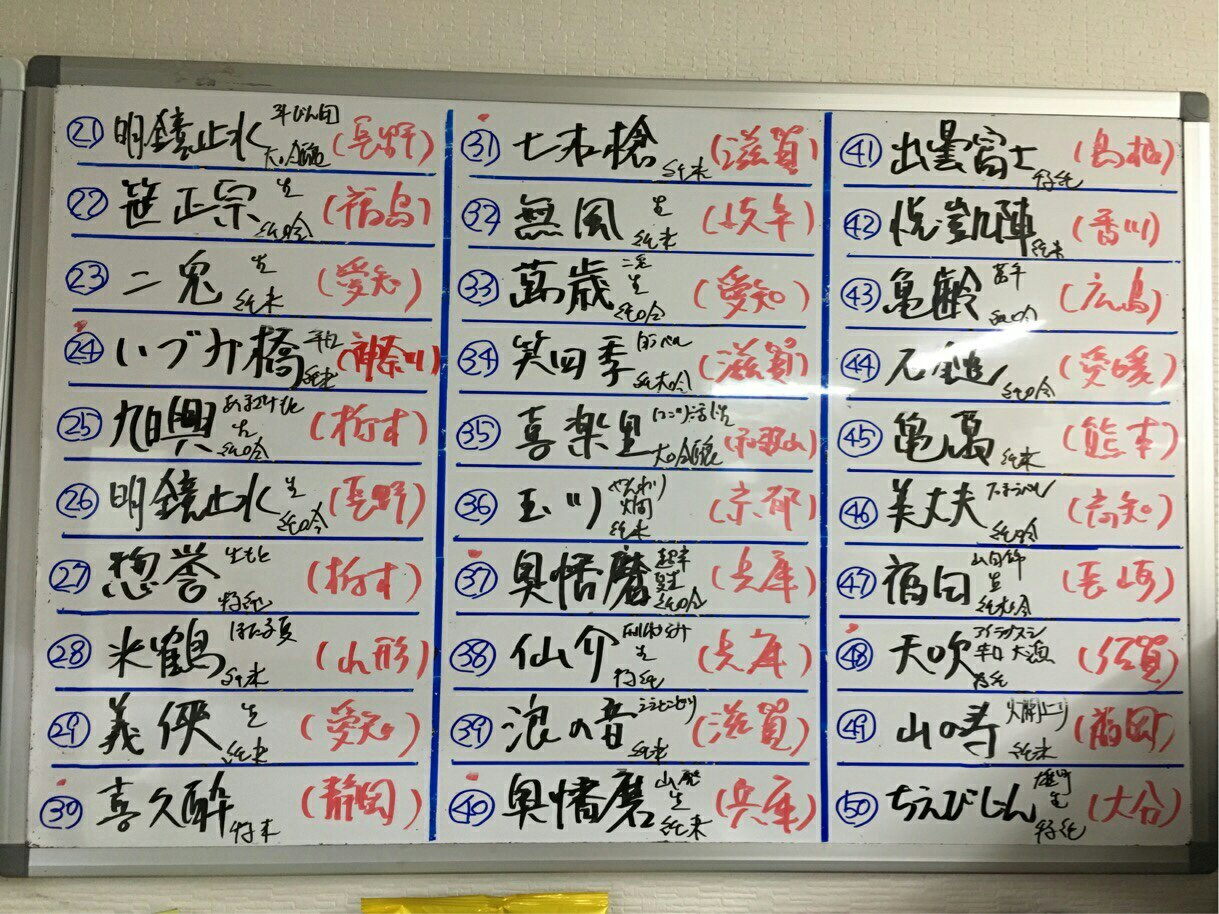 ㉑ 明鏡止水 大吟醸 (長野)
㉒ 笹正宗 生 純吟 (福島)
㉓ 二兎 生 純米 (愛知)
㉔ いづみ橋 純米 (神奈川)
㉕ 旭興 生 純吟 (栃木)
㉖ 明鏡止水 生 純吟 (長野)
㉗ 惣誉 生もと 特純 (栃木)
㉘ 米鶴 純米 (山形)
㉙ 義侠 生 純米 (愛知)
㉚ 喜久酔 特米 (静岡)
㉛ 七本槍 純米 (滋賀)
㉜ 無風 生 純米 (岐阜)
㉝ 萬歳 生 純吟 (愛知)
㉞ 笑四季 純米吟 (滋賀)
㉟ 喜楽里 大吟醸 (和歌山)
㊱ 玉川 純米 (京都)
㊲ 奥播磨 純吟 (兵庫)
㊳ 仙介 生 特純 (兵庫)
㊴ 浪の音 純米 (滋賀)
㊵ 奥播磨 山廃 生 純米 (兵庫)
㊶ 出雲富士 特純 (島根)
㊷ 悦凱陣 純米 (香川)
㊸ 亀齢 純吟 (広島)
㊹ 石鎚 純吟 (愛媛)
㊺ 亀萬 純米 (熊本)
㊻ 美丈夫 純吟 (高知)
㊼ 福田 山田錦 生 純米吟 (長崎)
㊽ 天吹 特純 (佐賀)
㊾ 山の寿 純米 (福岡)
㊿ ちえびじん 雄町 生 特純 (大分)